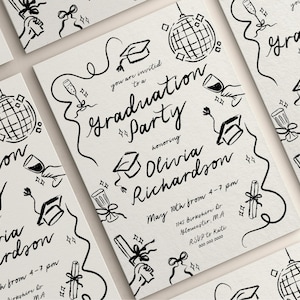 you are invited to a
Graduation
Party
honoring
Olivia
Richardson
May 11th from 4-7 pm
Gloucester, MA
RSVP to Kate